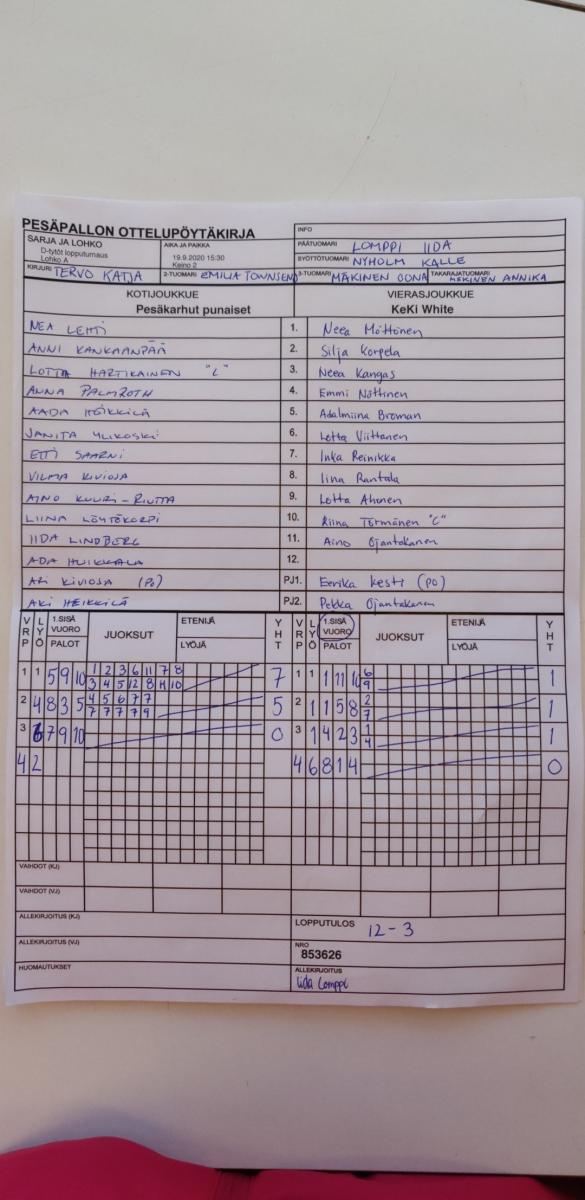 PESÄPALLON OTTELUPÖYTÄKIRJA
INFO
SARJA JA LOHKO
D-tytöt lopputurnaus
Lohko A
AIKA JA PAIKKA
19.9.2020 15:30
Keino 2
PÄÄTUOMARI LOMPPI IIDA
SYÖTTÖTUOMARI NYHOLM KALLE
KIRJURI TERVO KATJA 2-TUOMARI EMILIA TOWNSEND 3-TUOMARI MÄKINEN OONA TAKARAJATUOMARI MÄKINEN ANNIKA
KOTIJOUKKUE VIERASJOUKKUE
Pesäkarhut punaiset KeKi White
NEA LEHTI 1. Neea Möttönen
ANNI KANKAANPÄÄ 2. Silja Korpela
LOTTA HARTIKAINEN "C" 3. Neea Kangas
ANNA PALMROTH 4. Emmi Nöttinen
AADA HEIKKILÄ 5. Adalmiina Broman
JANITA YLIKOSKI 6. Lotta Viittanen
ETTI SAARNI 7. Inka Reinikka
VILMA KIVIOJA 8. Iina Rantala
AINO KUURI-RIUTTA 9. Lotta Ahonen
LIINA LÖYTÖKORPI 10. Riina Törmänen "C"
IIDA LINDBERG 11. Aino Ojantakanen
ADA HUIKKALA 12.
ARI KIVIOJA (PO) PJ1. Eerika Kesti (PO)
AKI HEIKKILÄ PJ2. Pekka Ojantakanen
VRP LYÖ 1.SISÄ VUORO PALOT JUOKSUT ETENIJÄ LYÖJÄ YHT VRP LYÖ 1.SISÄ VUORO PALOT JUOKSUT ETENIJÄ LYÖJÄ YHT
1 1 5 9 10 1 2 3 6 11 7 8 7 1 1 1 11 10 6 1
3 4 5 12 8 11 10 9
2 4 8 3 5 4 5 6 7 7 5 2 1 1 5 8 2 1
7 7 7 7 9 7
3 6 7 9 10 0 3 1 4 2 3 1 1
4
4 2 4 6 8 1 4 0
VAIHDOT (KJ)
VAIHDOT (VJ)
ALLEKIRJOITUS (KJ) LOPPUTULOS 12-3
ALLEKIRJOITUS (VJ) NRO
853626
HUOMAUTUKSET ALLEKIRJOITUS
Iida Lomppi